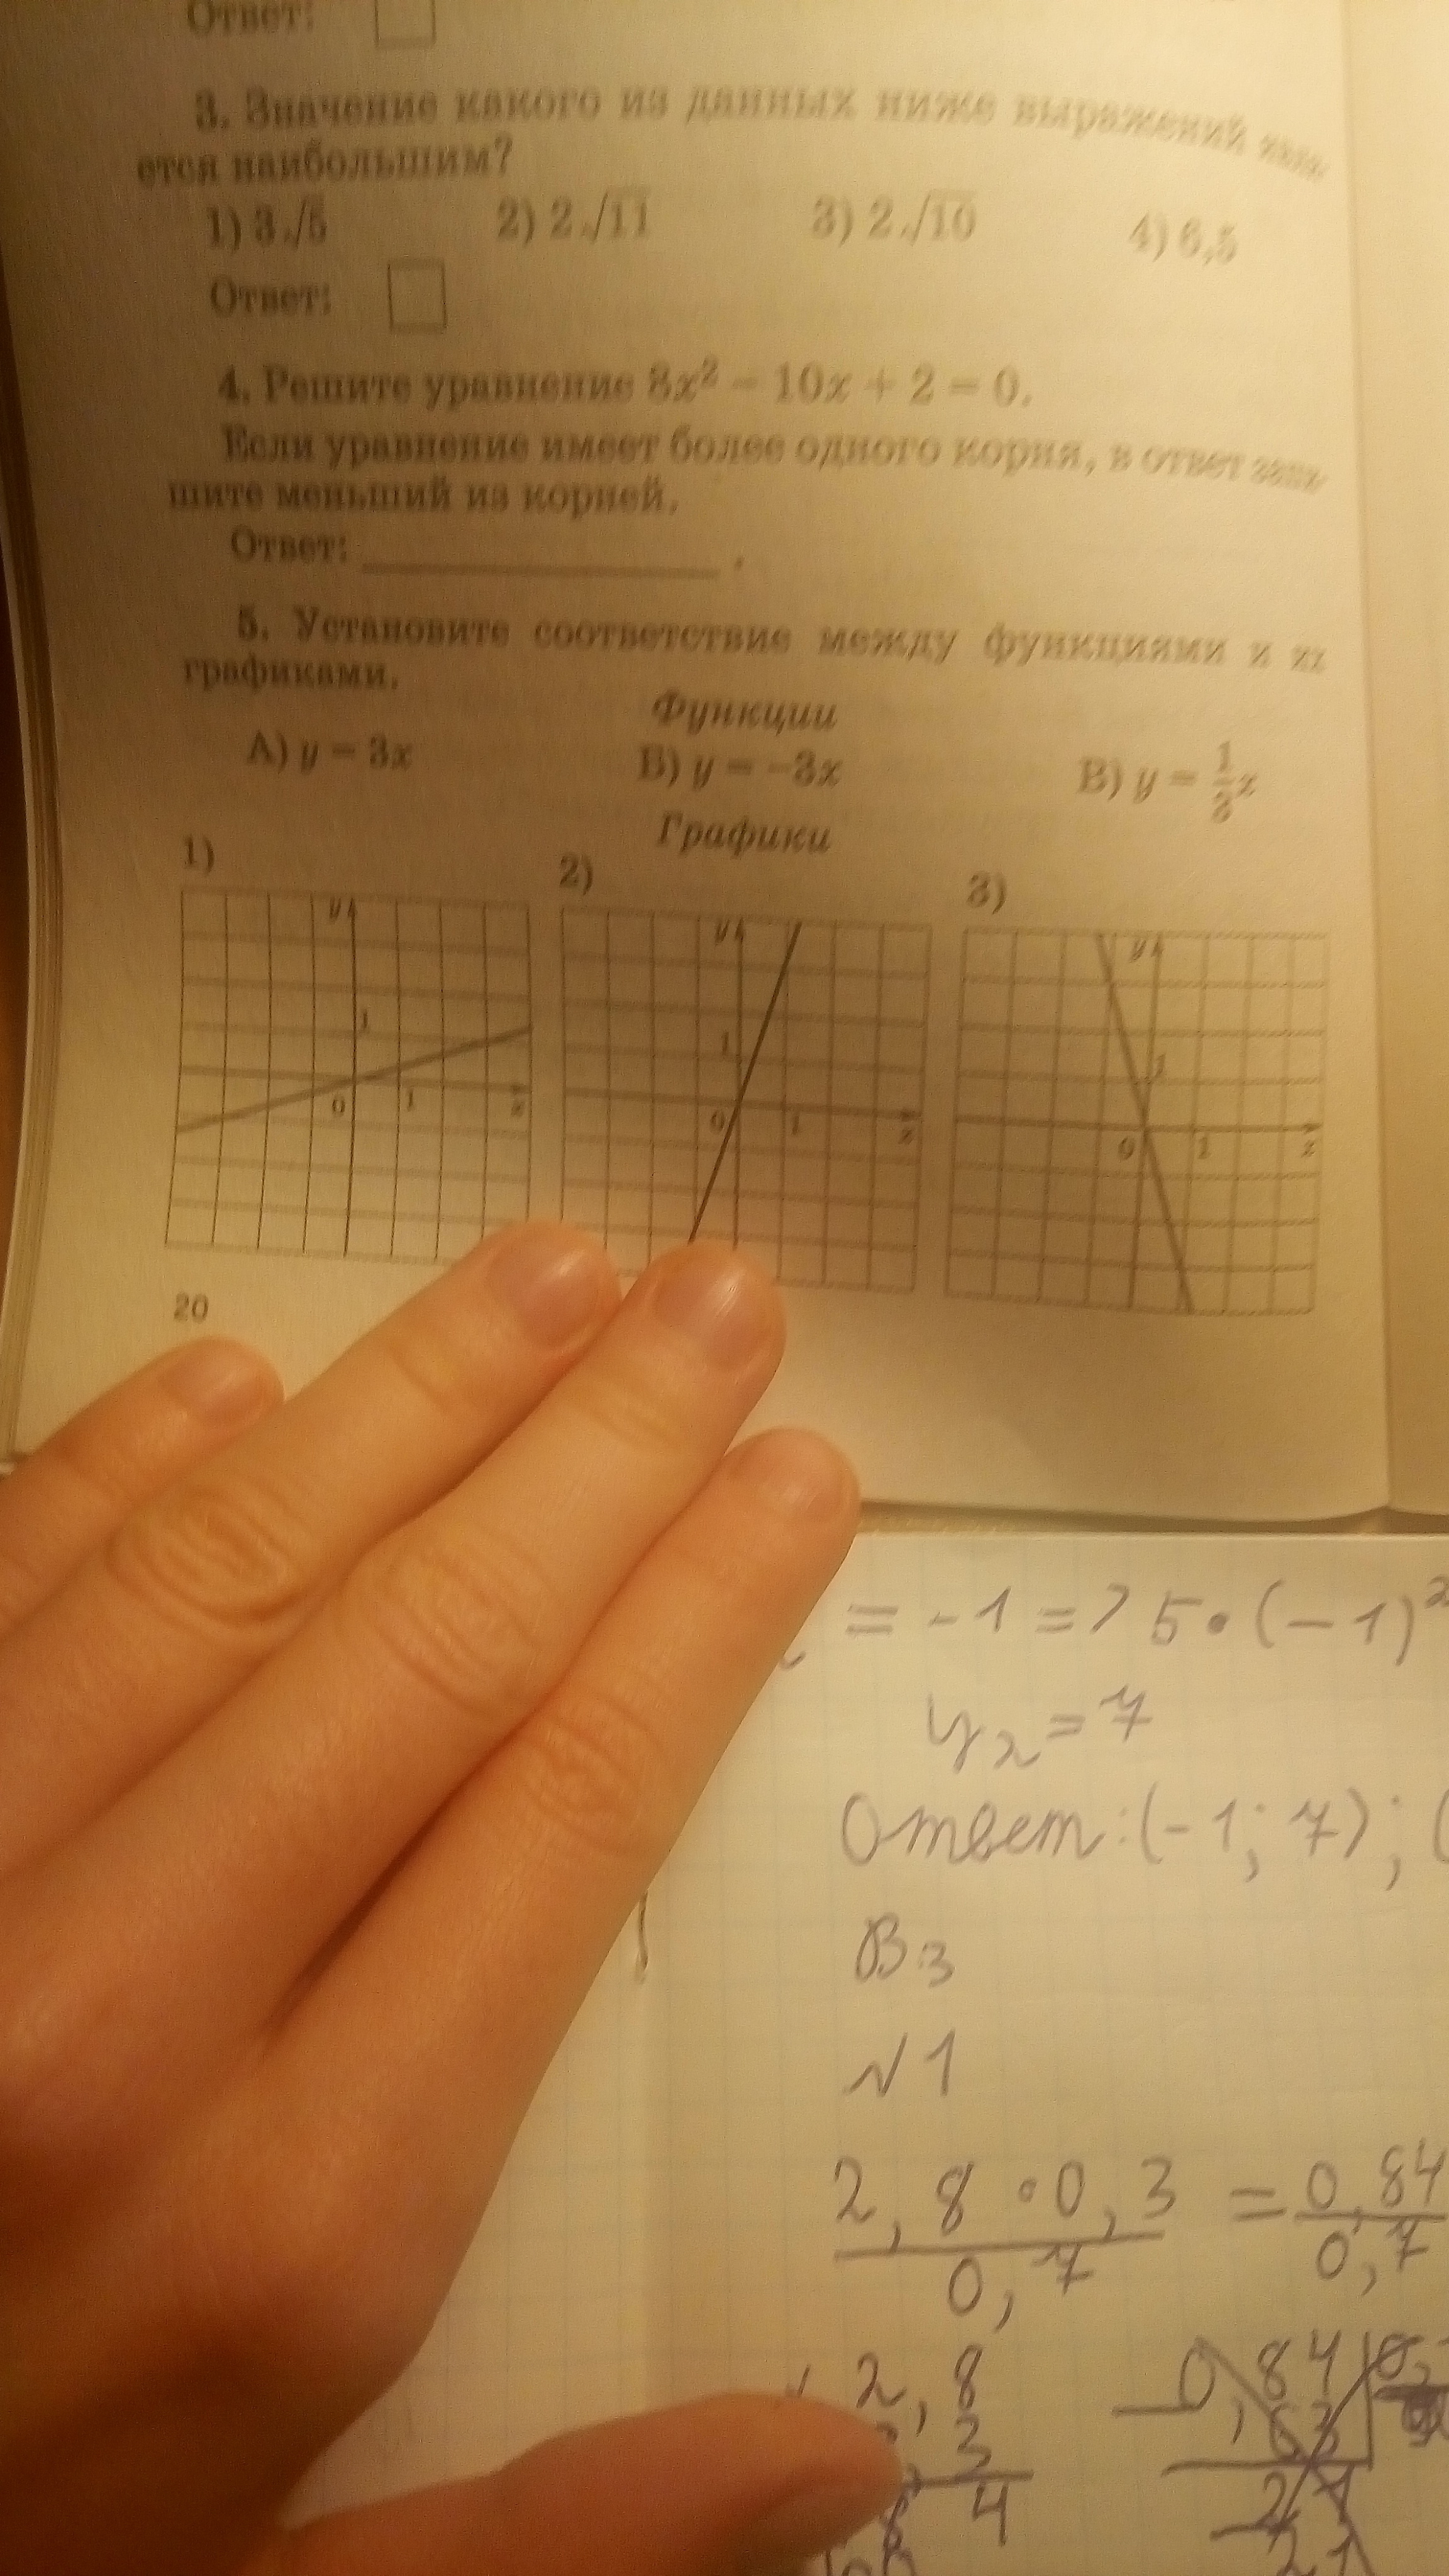 Ответ:
3. Значение какого из данных ниже выражений явля-
ется наибольшим?
1) 3√5 2) 2√11 3) 2√10 4) 6,5
Ответ:
4. Решите уравнение 8x² − 10x + 2 = 0.
Если уравнение имеет более одного корня, в ответ запи-
шите меньший из корней.
Ответ: ____________ .
5. Установите соответствие между функциями и их
графиками.
Функции
А) y = 3x Б) y = −3x В) y = 1/3 x
Графики
1) 2) 3)
y y y
1 1 1
0 1 x 0 1 x 0 1 x
20
= -1 => 5·(-1)²
y₂ = 7
Ответ: (-1; 7); (
В3
N1
2,8·0,3 / 0,7 = 0,84 / 0,7
2,8 0,84
3 63
84 21
21